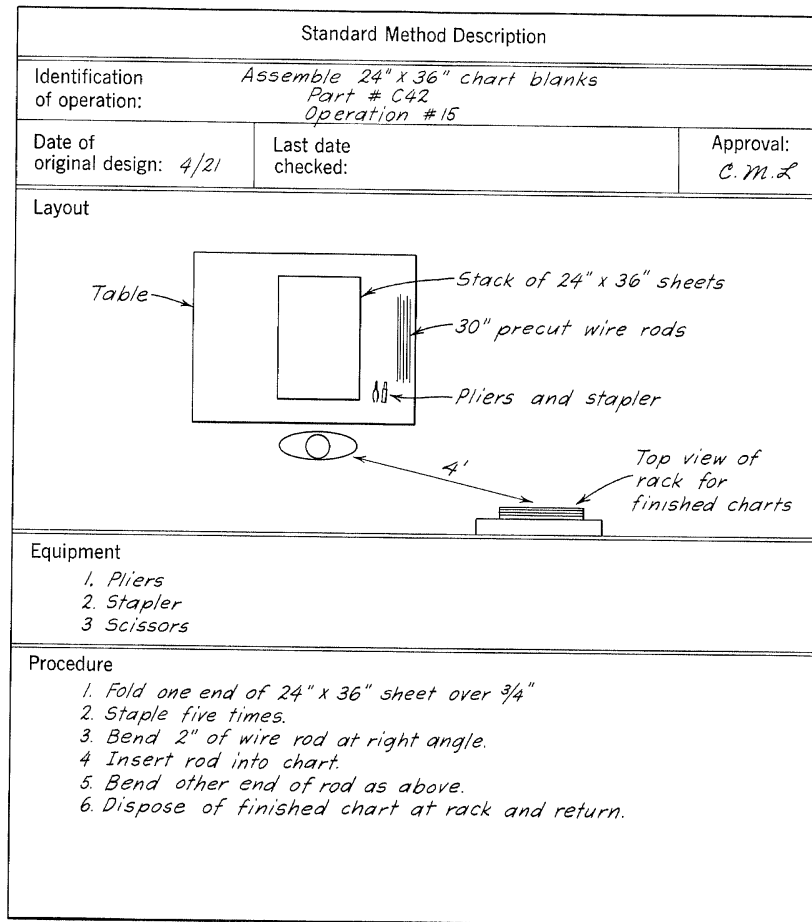 Standard Method Description
Identification of operation:
Assemble 24" x 36" chart blanks
Part # C42
Operation #15
Date of original design: 4/21
Last date checked:
Approval:
C.M.L
Layout
Table
Stack of 24" x 36" sheets
30" precut wire rods
Pliers and stapler
4'
Top view of
rack for
finished charts
Equipment
1. Pliers
2. Stapler
3 Scissors
Procedure
1. Fold one end of 24" x 36" sheet over 3/4"
2. Staple five times.
3. Bend 2" of wire rod at right angle.
4 Insert rod into chart.
5. Bend other end of rod as above.
6. Dispose of finished chart at rack and return.